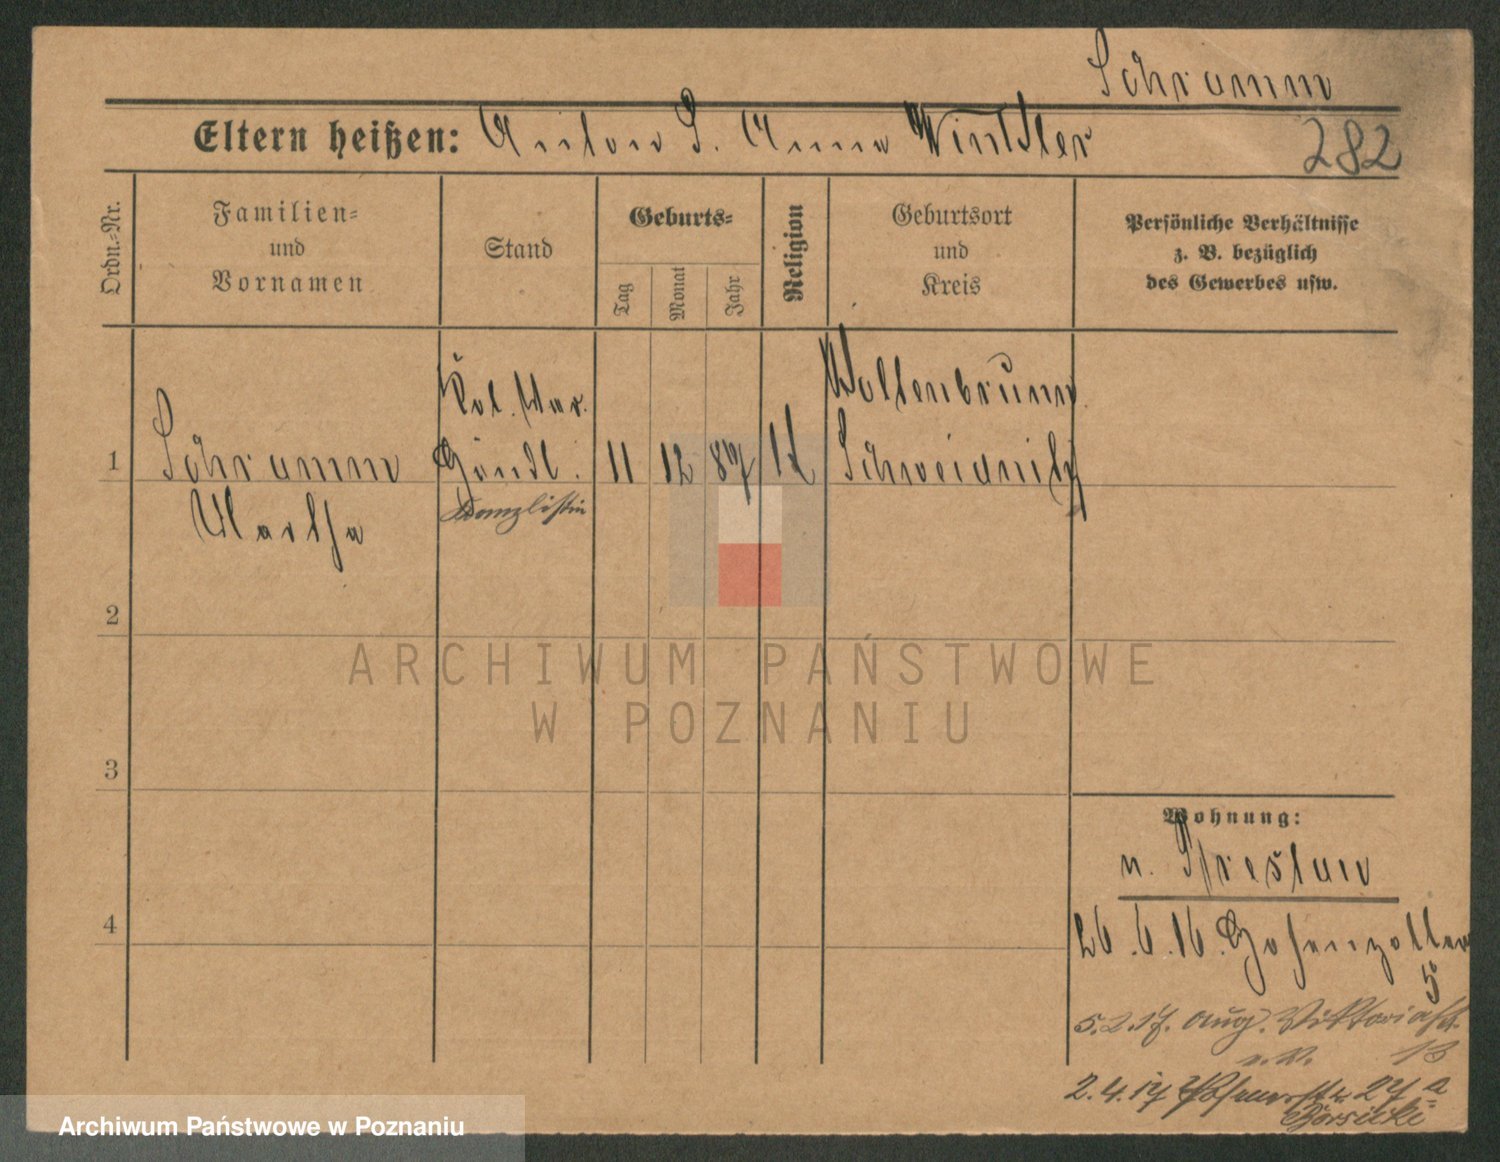 Schramm
Eltern heißen: Anton S. Anna Winkler
282
Ordn.-Nr.
Familien-
und
Vornamen
Stand
Geburts-
Tag
Monat
Jahr
Religion
Geburtsort
und
Kreis
Persönliche Verhältnisse
z. B. bezüglich
des Gewerbes usw.
1
Schramm
Martha
Kol. War.
Händl.
Kanzlistin
11
12
87
Schweidnitz
2
ARCHIWUM PAŃSTWOWE
W POZNANIU
3
Wohnung:
v. Breslau
4
26.6.16. Hohenzoller
5
5.2.17. Aug. Viktoriast.
13
2.4.17 27a
Archiwum Państwowe w Poznaniu